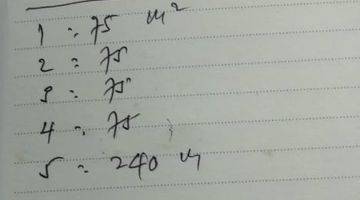 1 : 75 m²
2 : 75
3 : 75
4 : 75
5 : 240 m